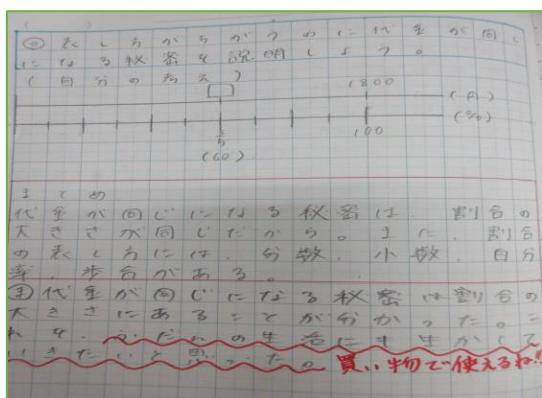 ㋱ 表し方がちがうのに代金が同じ
になる秘密を説明しよう。
(自分の考え)
□ 1800 (円)
(%)
3/5 100
(60)
まとめ
代金が同じになる秘密は、割合の
大きさが同じだから。また、割合
の表し方には、分数、小数、百分
率、歩合がある。
代金が同じになる秘密は割合の
大きさにあることが分かった。こ
れを、ふだんの生活にも生かして
いきたいと思った。
買い物で使えるね!!